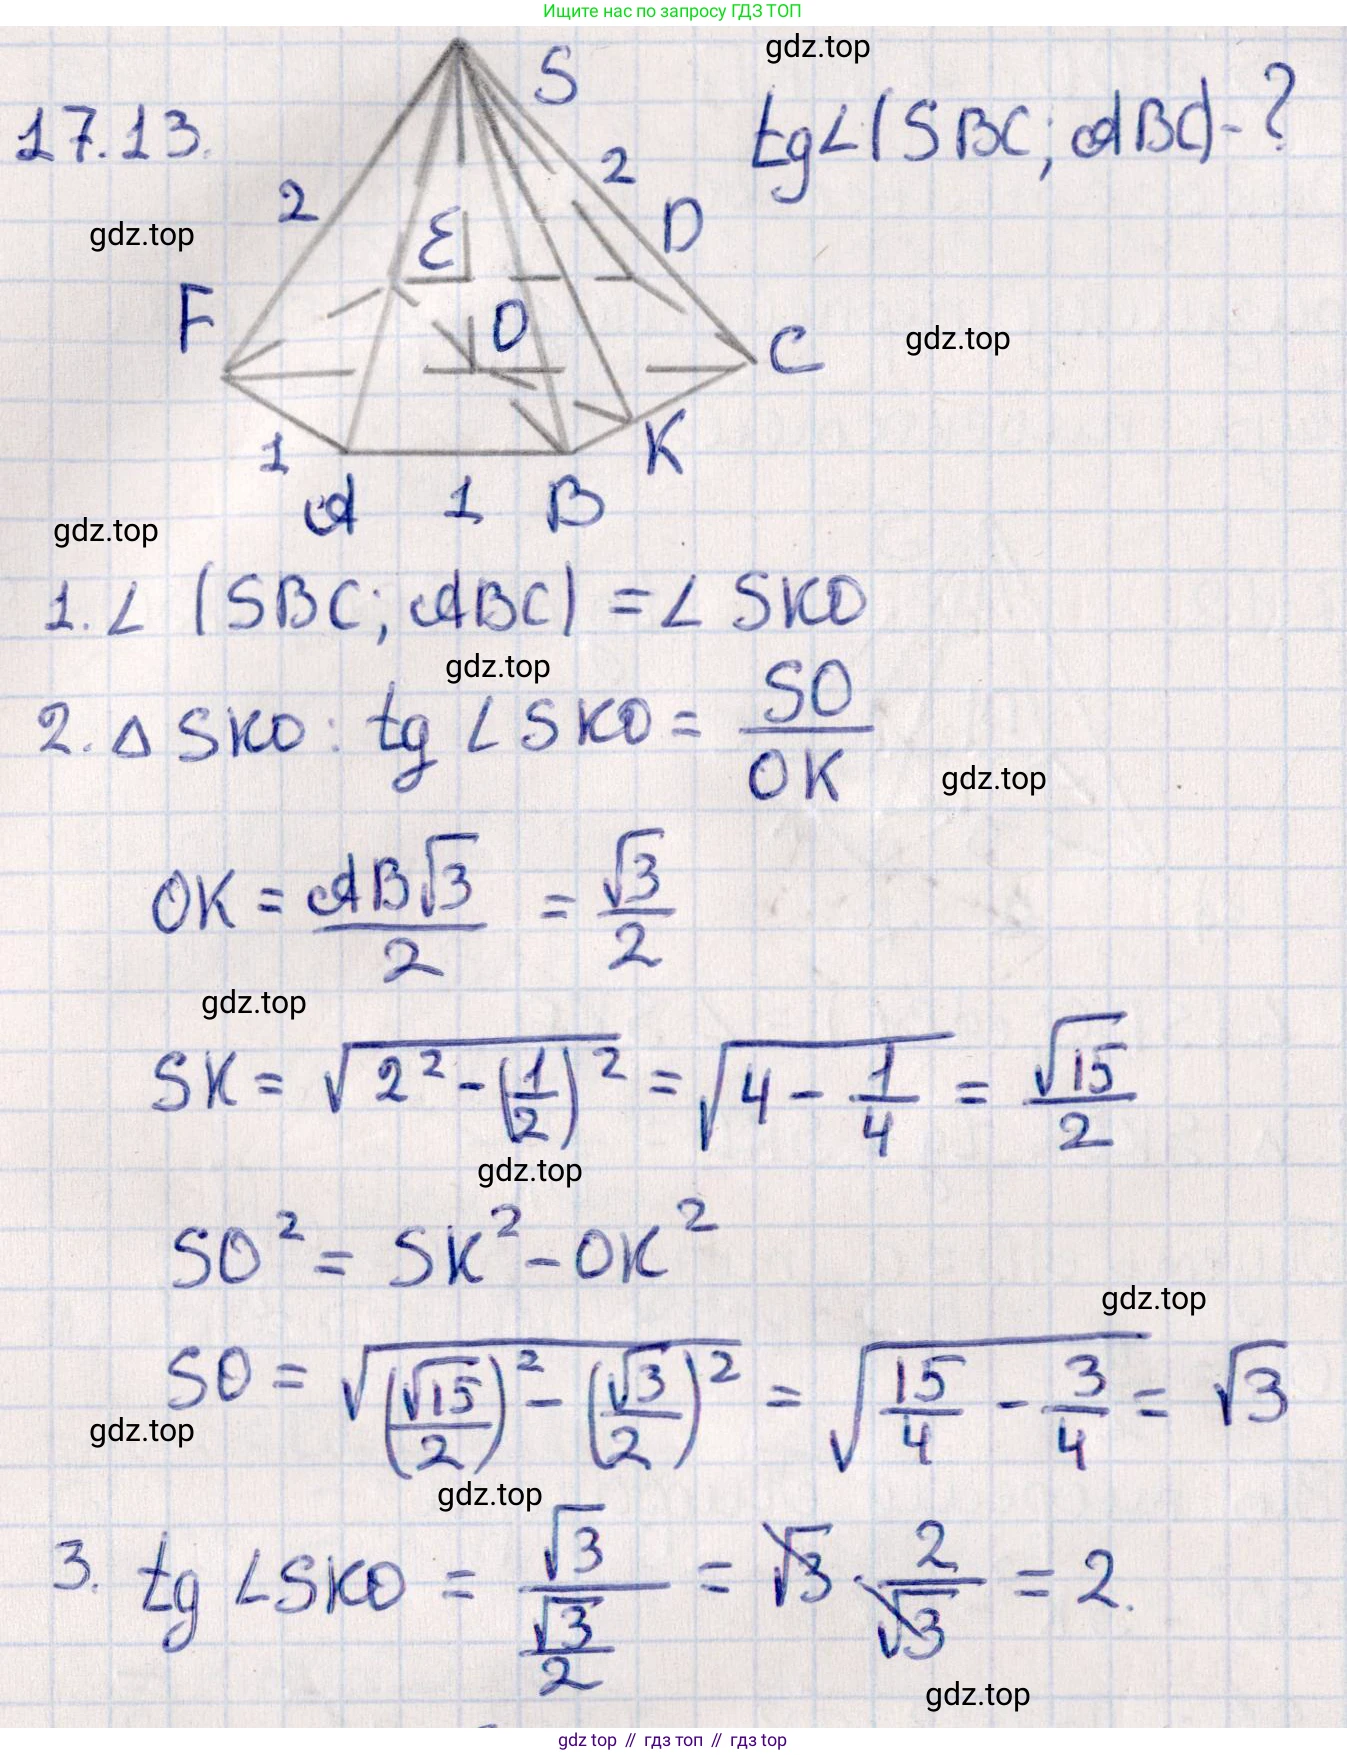 Ищите нас по запросу ГДЗ ТОП
gdz.top
S
17.13.
tg∠(SBC; ABC)-?
2
2
gdz.top
E
D
F
O
gdz.top
C
1
K
A
1
B
gdz.top
1. ∠ (SBC; ABC) = ∠ SKO
gdz.top
2. △ SKO: tg ∠ SKO = SO/OK
gdz.top
OK = AB√3/2 = √3/2
gdz.top
SK = √(2² - (1/2)²) = √(4 - 1/4) = √15/2
gdz.top
SO² = SK² - OK²
gdz.top
SO = √((√15/2)² - (√3/2)²) = √(15/4 - 3/4) = √3
gdz.top
gdz.top
3. tg ∠SKO = √3/(√3/2) = √3 · 2/√3 = 2.
gdz.top
gdz top // гдз топ // гдз top